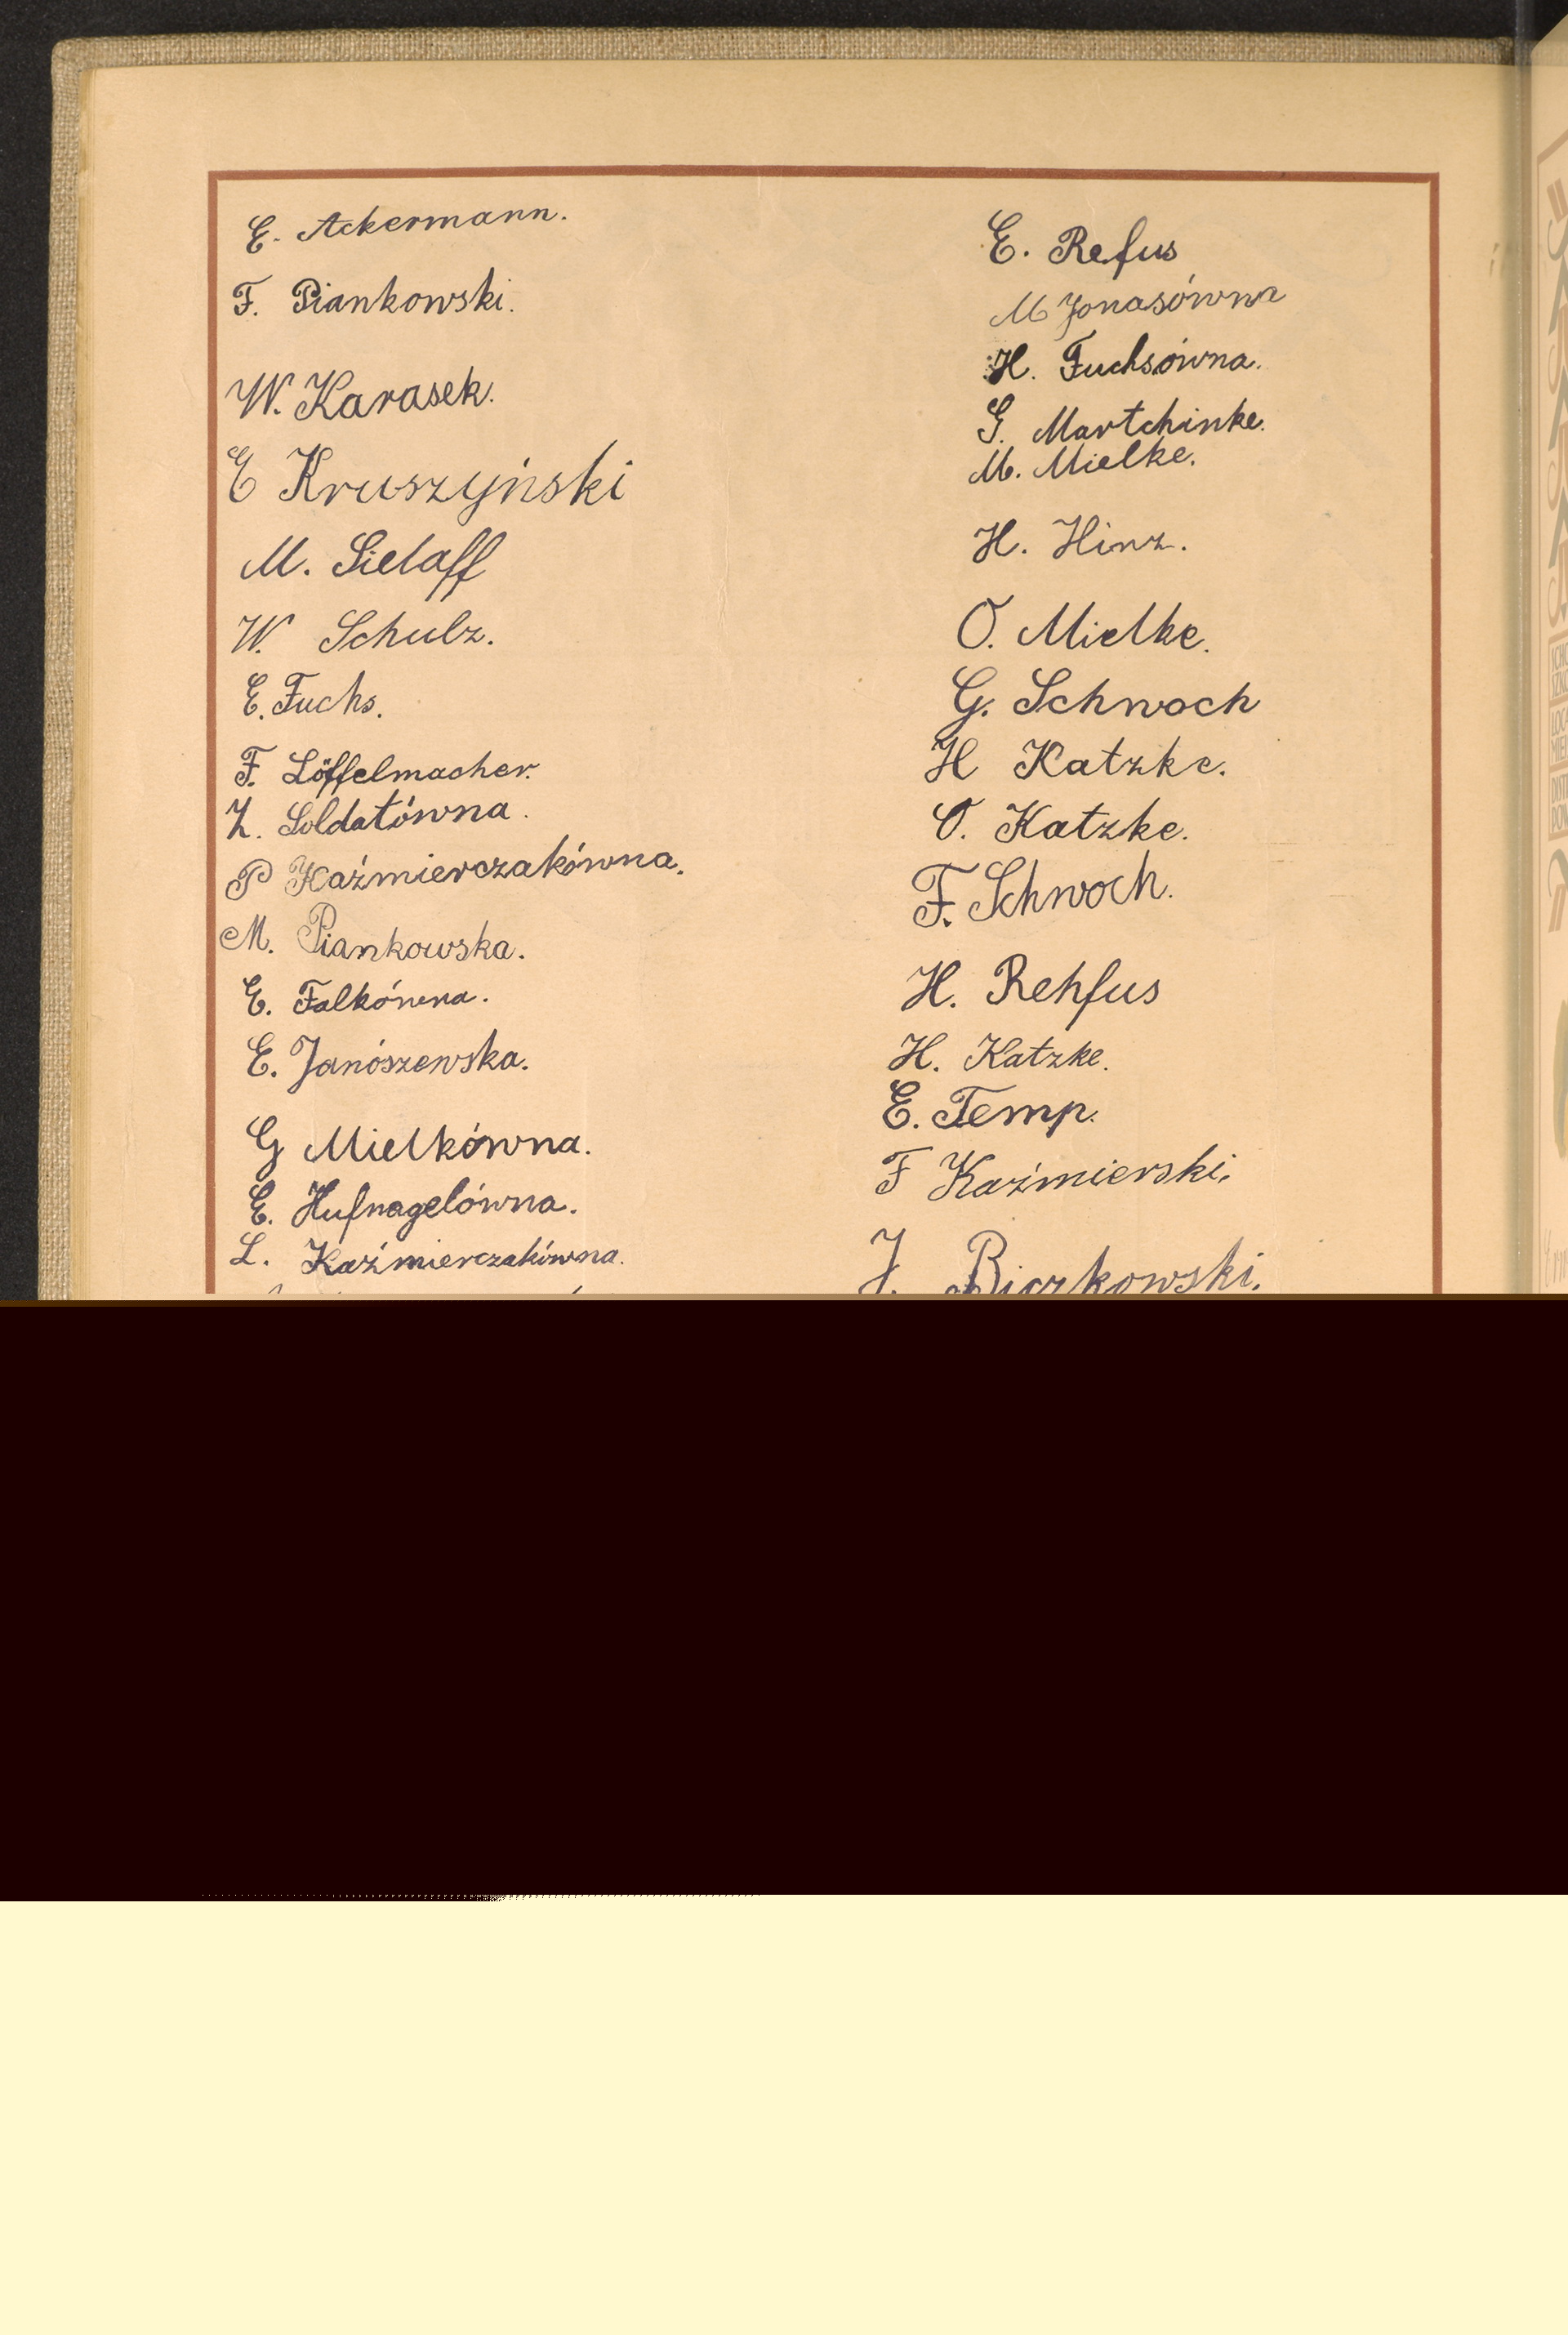 E. Ackermann.
F. Piankowski.
W. Karasek.
E Kruszyński
M. Sielaff
W. Schulz.
E. Fuchs.
F. Löffelmacher.
Z. Soldatówna.
P Kaźmierczakówna.
M. Piankowska.
E. Falkówna.
E. Janószewska.
G Mielkówna.
E. Hufnagelówna.
L. Kaźmierczakówna.
E. Refus
M Jonasówna
H. Fuchsówna.
G. Martchinke.
M. Mielke.
H. Hinz.
O. Mielke.
G. Schwoch
H Katzke.
O. Katzke.
F. Schwoch.
H. Rehfus
H. Katzke.
E. Temp.
F Kaźmierski.
J. Biczkowski.